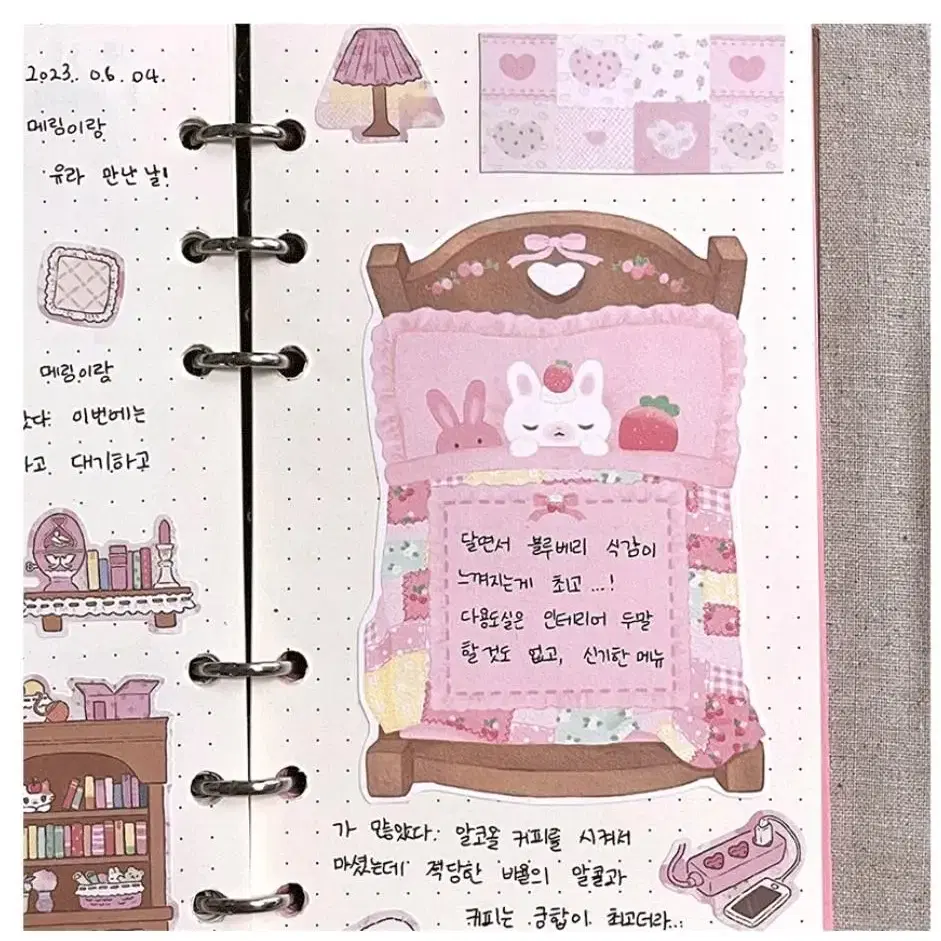 2023. 06. 04.
메림이랑
유라 만난 날!
메림이랑
았다. 이번에는
하고 대기하고
달면서 블루베리 식감이
느껴지는게 최고 ...!
다용도실은 인테리어 두말
할것도 없고, 신기한 메뉴
가 많았다. 알코올 커피를 시켜서
마셨는데 적당한 비율의 알콜과
커피는 궁합이 최고더라...